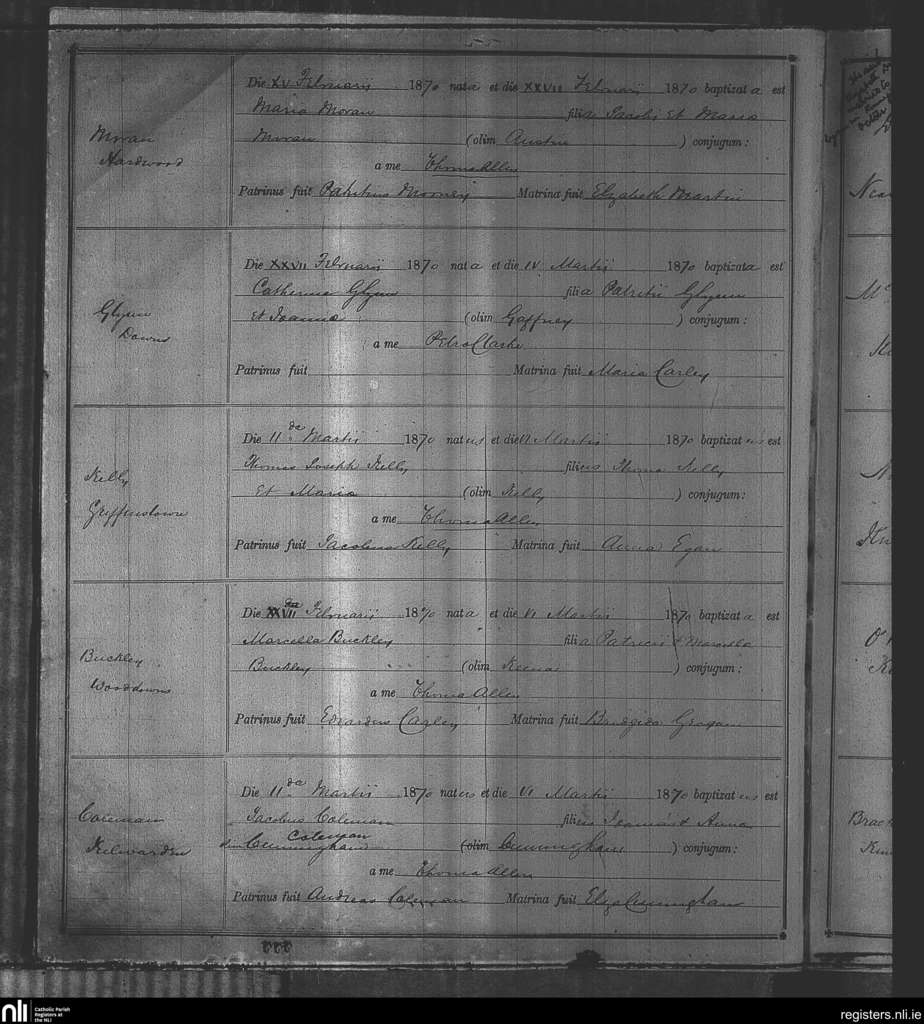 55
Moran
Hardwood
Die XV Februarii 1870 nata et die XXVII Februarii 1870 baptizata est
Maria Moran filia Jacobi et Maria
Moran (olim Austin) conjugum:
a me Thoma Allen
Patrinus fuit Patritius Mooney Matrina fuit Elizabeth Martin
Glynn
Downs
Die XXVII Februarii 1870 nata et die IV Martii 1870 baptizata est
Catherina Glynn filia Patritii Glynn
et Joanna (olim Gaffney) conjugum:
a me Petro Clarke
Patrinus fuit Matrina fuit Maria Carley
Kelly
Griffinstown
Die 11da Martii 1870 natus et die VI Martii 1870 baptizatus est
Thomas Joseph Kelly filius Thoma Kelly
et Maria (olim Kelly) conjugum:
a me Thoma Allen
Patrinus fuit Jacobus Kelly Matrina fuit Anna Egan
Buckley
Wooddowns
Die XXVII Februarii 1870 nata et die VI Martii 1870 baptizata est
Marcella Buckley filia Patricii & Marcella
Buckley (olim Keena) conjugum:
a me Thoma Allen
Patrinus fuit Edvardus Carley Matrina fuit Bridgida Grogan
Coleman
Kilwarden
Die 11da Martii 1870 natus et die VI Martii 1870 baptizatus est
Jacobus Coleman filius Joannis & Anna
Coleman
Cunningham (olim Cunningham) conjugum:
a me Thoma Allen
Patrinus fuit Andreas Coleman Matrina fuit Eliza Cunningham
nli
Catholic Parish
Registers at
the NLI
registers.nli.ie